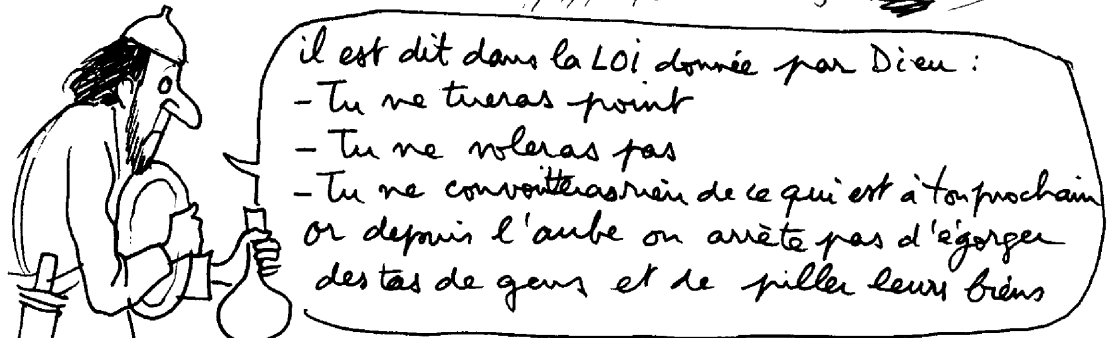 il est dit dans la LOi donnée par Dieu :
- Tu ne tueras point
- Tu ne voleras pas
- Tu ne convoitteras rien de ce qui est à ton prochain
or depuis l'aube on arrète pas d'égorger
des tas de gens et de piller leurs biens